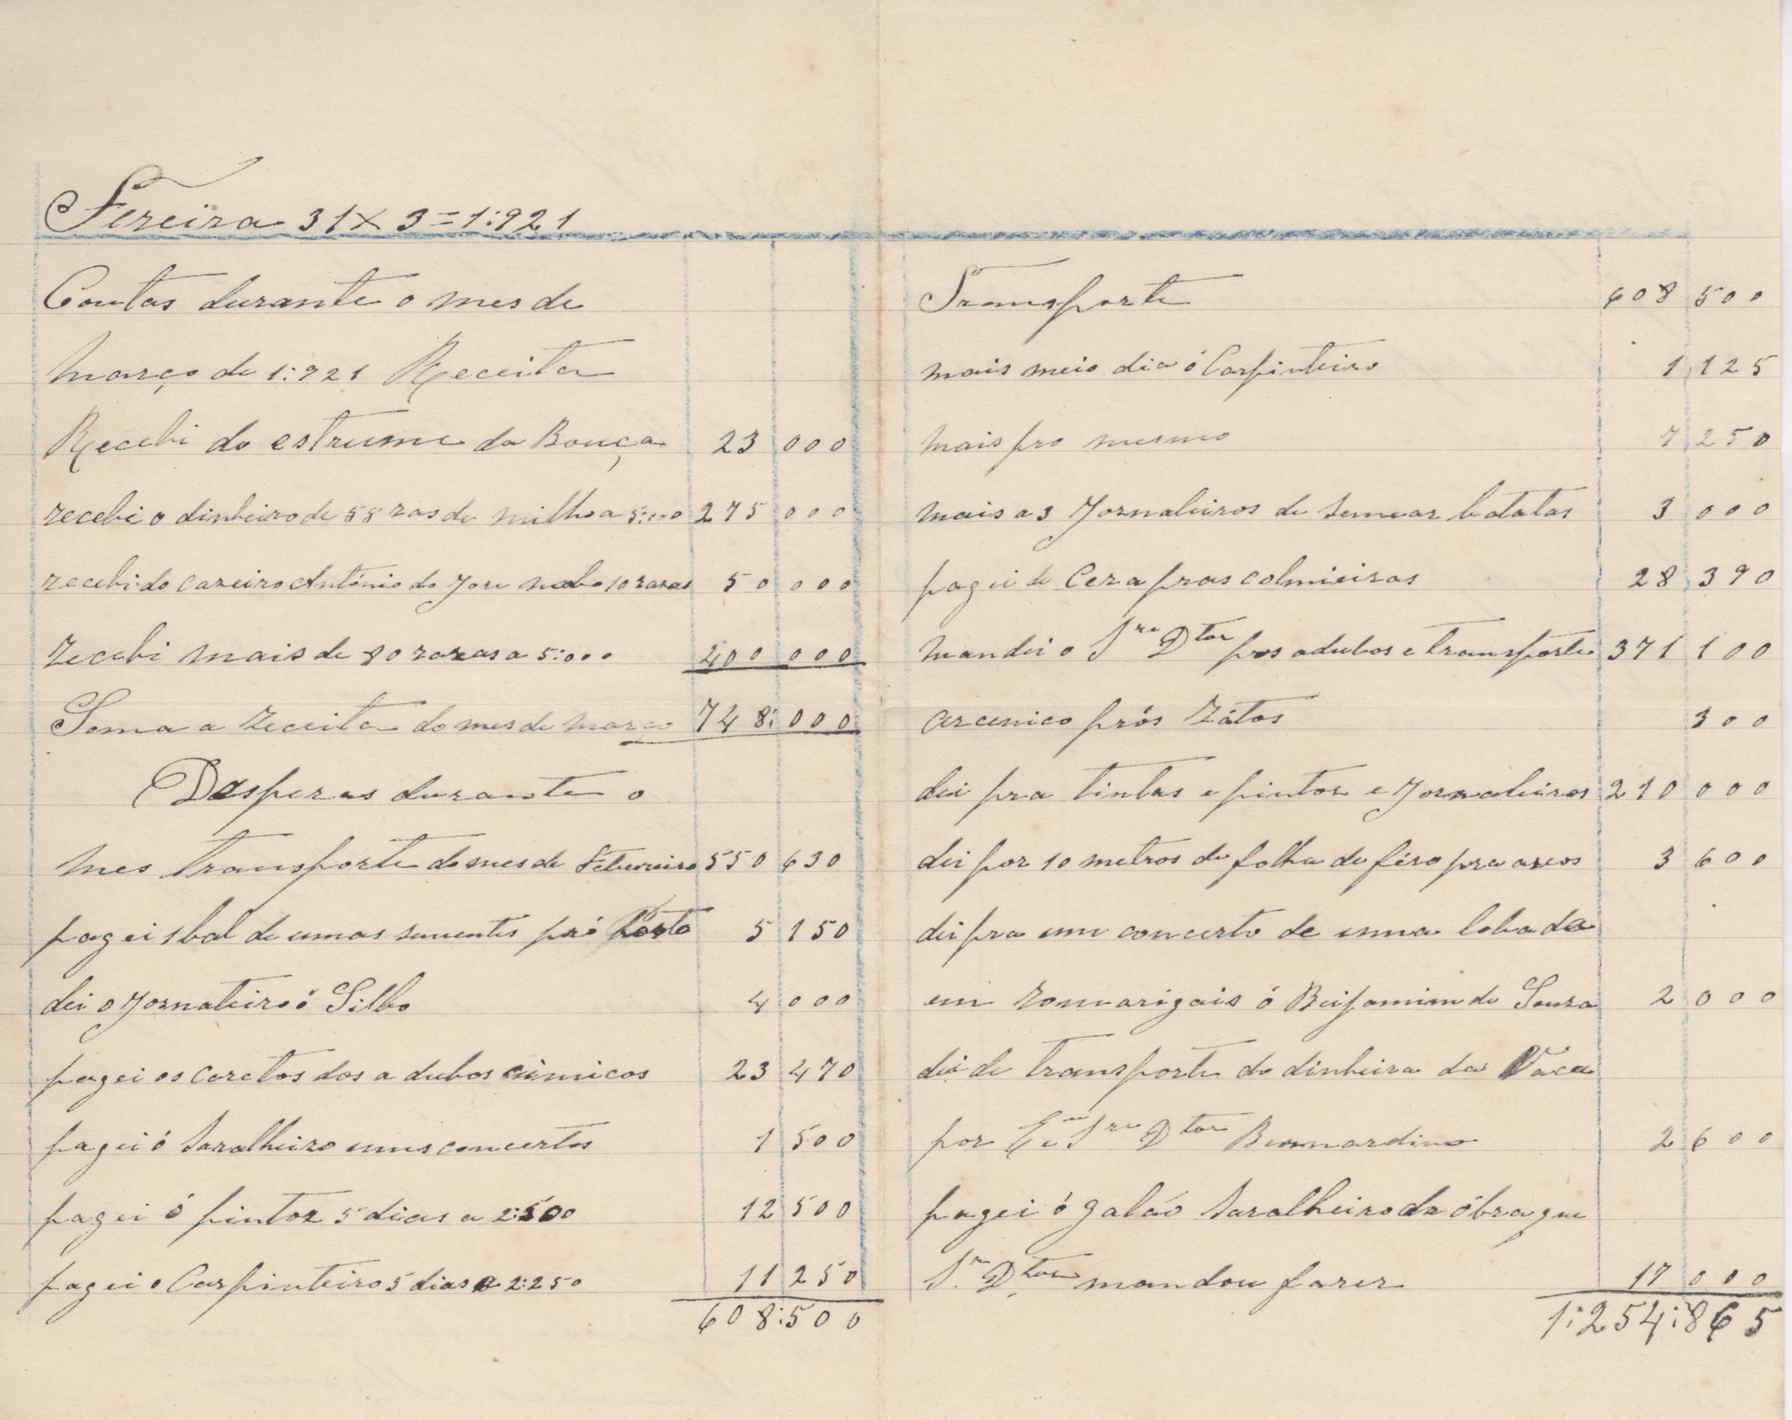 Fereira 31 x 3 = 1:921
Contas durante o mes de
Março de 1:921 Receita
Recebi do estrume da Bouça 23 000
recebi o dinheiro de 55 razas de milho a 5:000 275 000
recebi do cazeiro António do Jose nabo 10 razas 50 000
recebi mais de 80 razas a 5:000 400 000
Soma a receita do mes de março 748:000
Despezas durante o
mes transporte do mes de Febureiro 550 630
pagei 1 bal de umas sementes pró Porto 5 150
dei o Jornaleiro ó Silbo 4 000
pagei os caretos dos adubos cimicos 23 470
pagei ó Saralheiro uns concertos 1 500
pagei ó pintor 5 dias a 2:500 12 500
pagei o Carpinteiro 5 dias a 2:250 11 250
608:500
Transporte 608 500
mais meio dia ó Carpinteiro 1 125
Mais pro mesmo 7 250
mais a 3 Jornaleiros de semear batatas 3 000
pagei de Cera pras colmieiras 28 390
mandei o Snr Dtor pros adubos e transporte 371 100
arcenico prós Rátos 300
dei pra tintas e pintor e Jornaleiros 210 000
dei por 10 metros de folha de fero pra arcos 3 600
dei pra um concerto de uma lobada
em romarigais ó Beijamim de Souza 2 000
dei de transporte do dinheiro da Vaca
por Snr Dtor Bernnardino 2 600
pagei ó galáo Saralheiro da óbra que
Sr Dtor mandou fazer 17 000
1:254:865